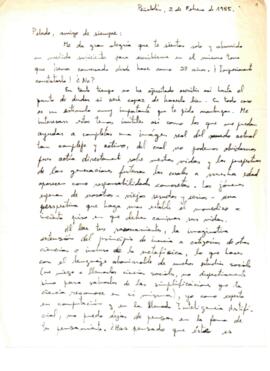 Peñalolén, 2 de Febrero de 1985.
Pelado, amigo de siempre:
Me da gran alegría que te sientas solo y aburrido
en medida suficiente para escribirme en el mismo tono
que hemos conversado desde hace como 28 años. ¡Impaciente
contestarte! ¿No?
En tanto tengo no he ejercitado escribir así hasta el
punto de dudar si seré capaz de hacerlo bien. En todo caso
es un estímulo muy importante que te pido mantengas. Me
interesan estos temas inútiles así como los que nos puedan
ayudar a completar una imagen real del mundo actual
tan complejo y activo, del cual no podemos olvidarnos
pues actúa directamente sobre nuestras vidas y las perspectivas
de las generaciones futuras las cuales a nuestra edad
aparecen como responsabilidades concretas. Los jóvenes
esperan de nosotros y viejos serenidad y una
perspectiva que haga más estable el
incierto piso en que deben caminar sus vidas.
Al leer tu razonamiento, la imaginativa
extensión del principio de inercia a categorías de otras
ciencias, e incluso de la metafísica, lo que haces
con el lenguaje abominable de nuestra ciencia social
(me niego a llamarlas ciencias sociales, no despectivamente
sino para salvarlas de las simplificaciones que la
ciencia reconoce en sí misma), yo como experto
en computación y en la llamada Inteligencia Artifi-
cial, no puedo dejar de pensar en la forma de
tu pensamiento. ¿Has pensado que éste es